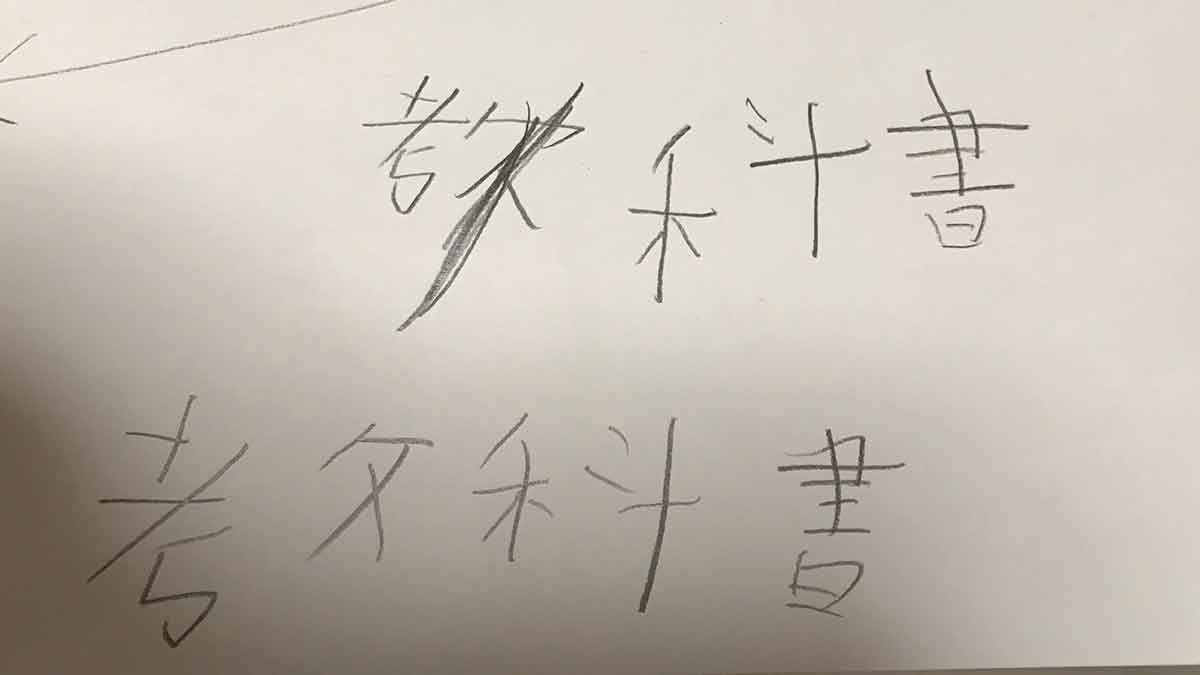 教科書
教科書